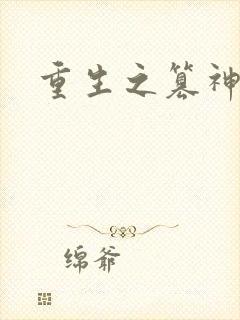 重生之篡神
绵爷